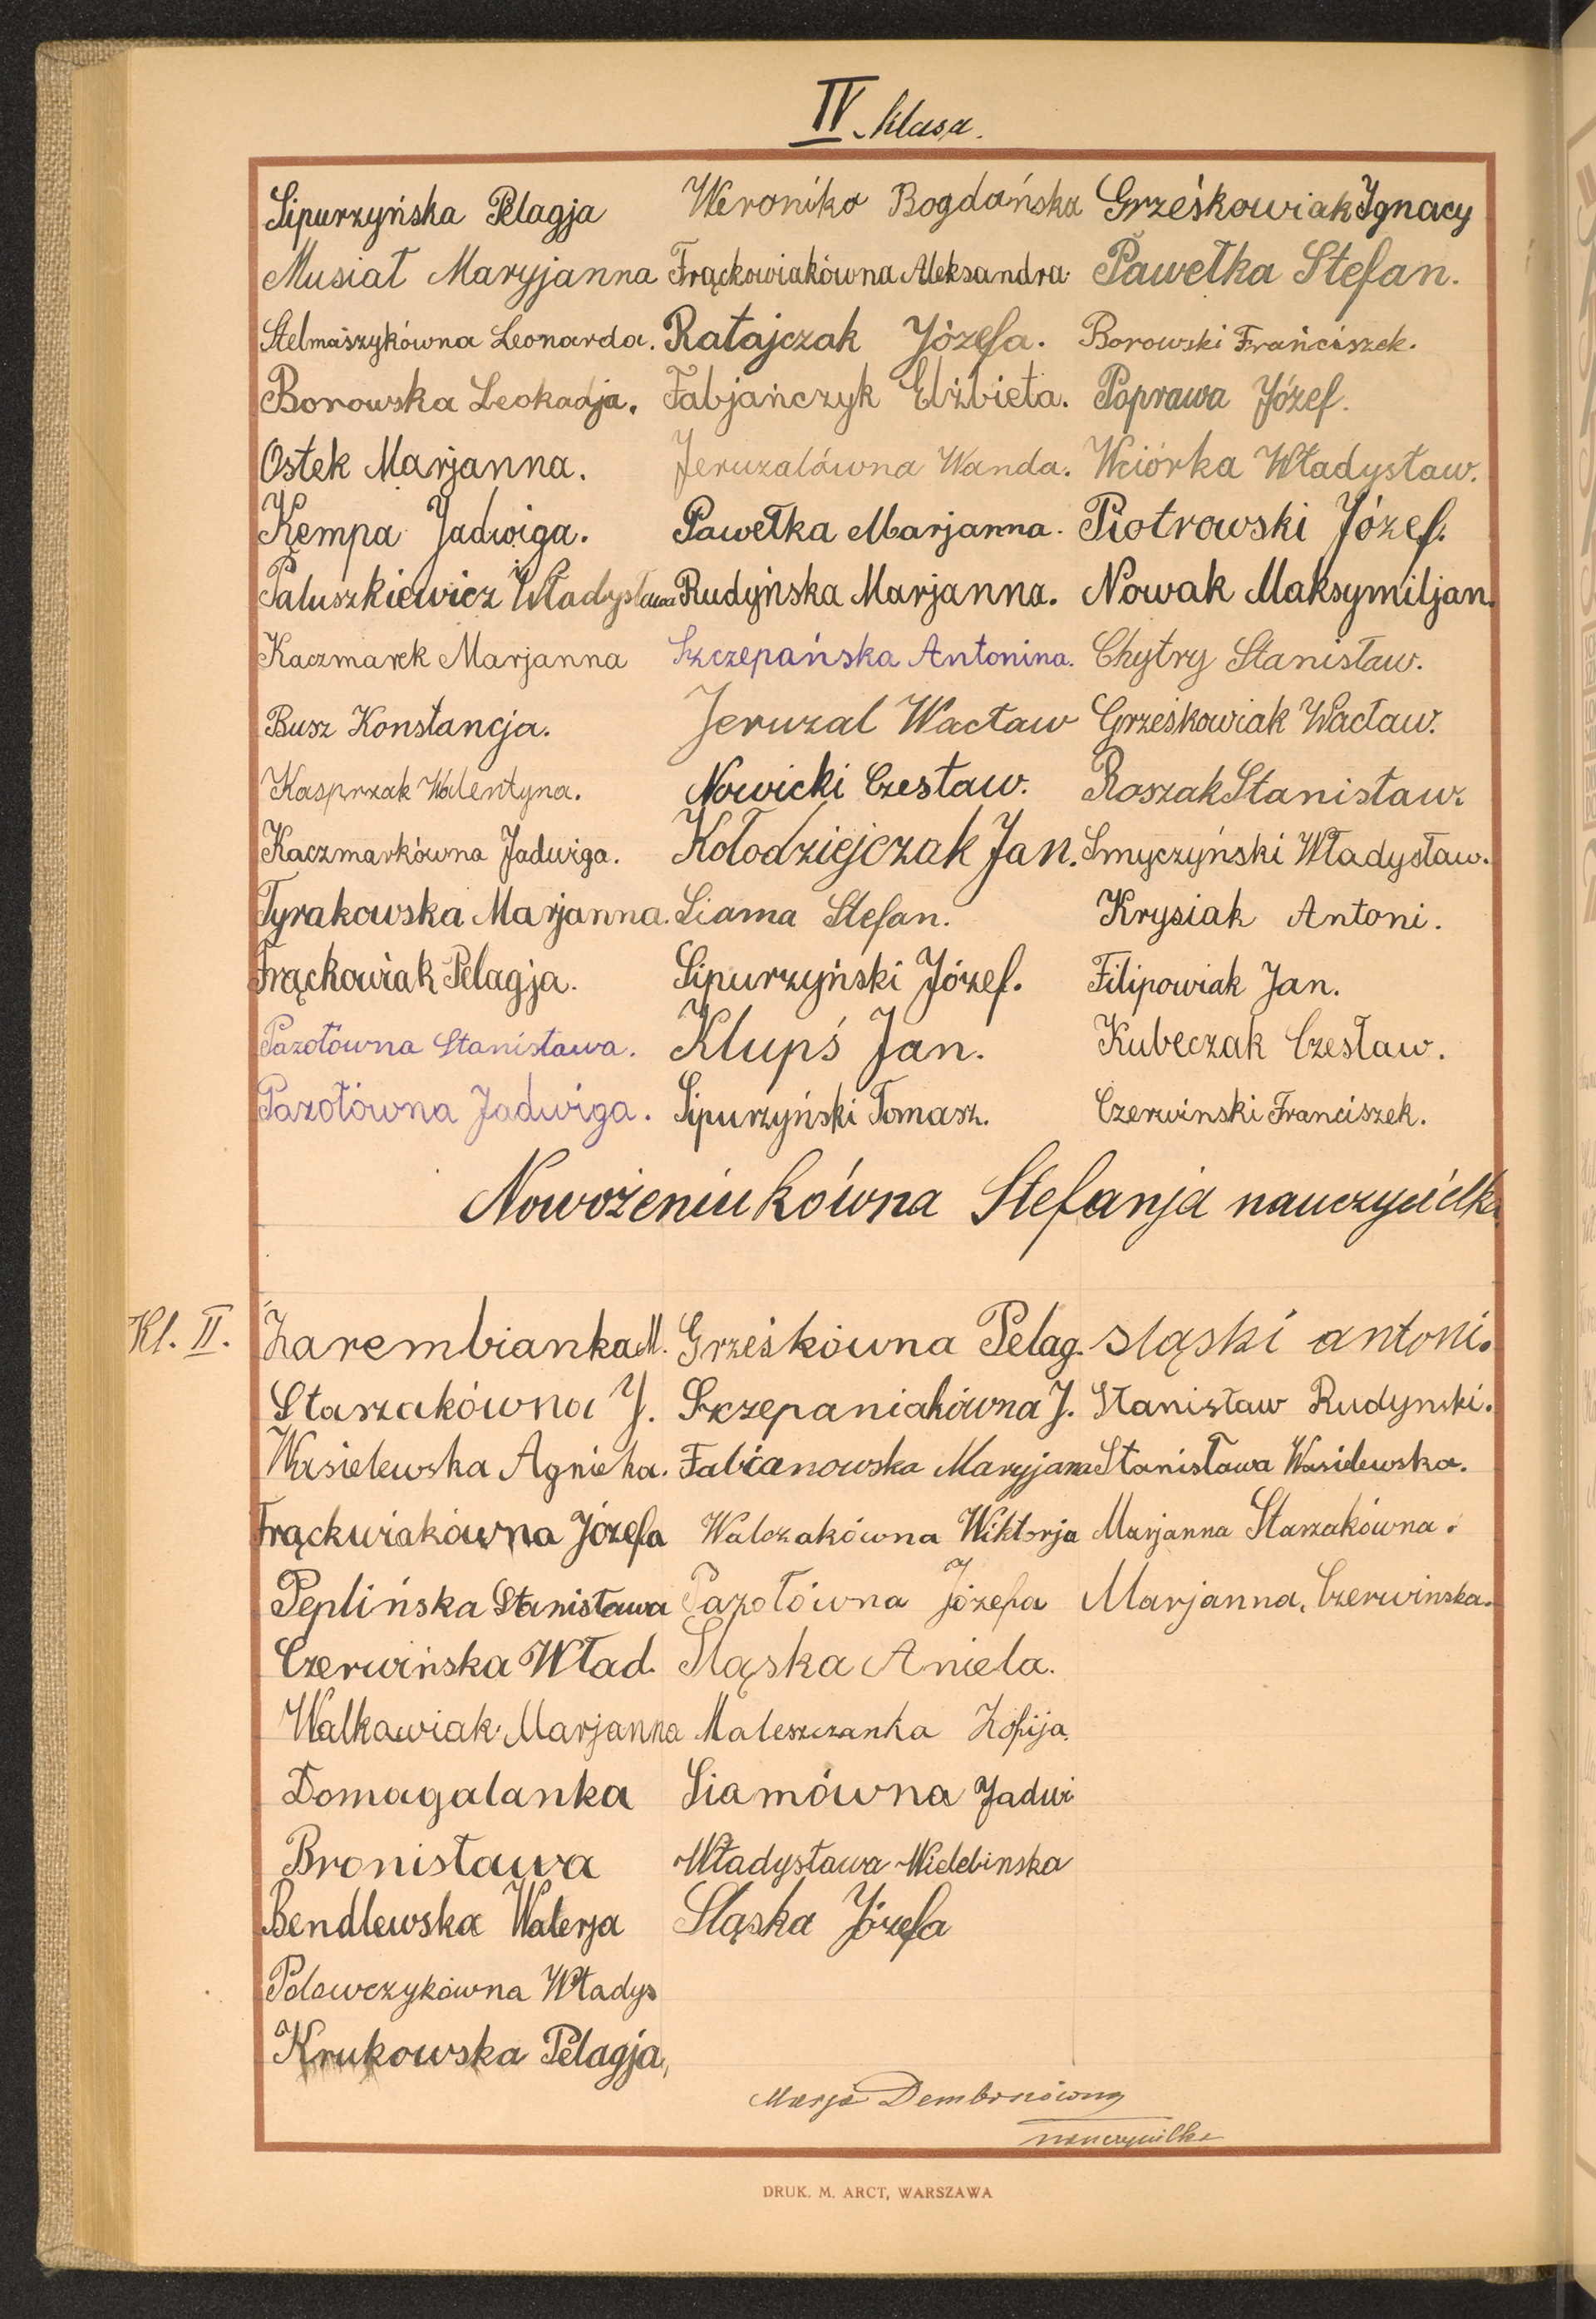 IV klasa.
Sipurzyńska Pelagja
Musiał Maryjanna
Stelmaszykówna Leonarda.
Borowska Leokadja.
Ostek Marjanna.
Kempa Jadwiga.
Paluszkiewicz Władysława
Kaczmarek Marjanna
Busz Konstancja.
Kasprzak Walentyna.
Kaczmarkówna Jadwiga.
Tyrakowska Marjanna.
Frąckowiak Pelagja.
Pazołówna Stanisława.
Pazołówna Jadwiga.
Weronika Bogdańska
Frąckowiakówna Aleksandra
Ratajczak Józefa.
Fabjańczyk Elżbieta.
Jeruzalówna Wanda.
Pawełka Marjanna.
Rudyńska Marjanna.
Szczepańska Antonina.
Jeruzal Wacław
Nowicki Czesław.
Kołodziejczak Jan.
Siama Stefan.
Sipurzyński Józef.
Klupś Jan.
Sipurzyński Tomasz.
Grześkowiak Ignacy
Pawełka Stefan.
Borowski Franciszek.
Poprawa Józef.
Wciórka Władysław.
Piotrowski Józef.
Nowak Maksymiljan.
Chytry Stanisław.
Grześkowiak Wacław.
Roszak Stanisław.
Smyczyński Władysław.
Krysiak Antoni.
Filipowiak Jan.
Kubeczak Czesław.
Czerwinski Franciszek.
Nowożeniukówna Stefanja nauczycielka
Kl. II.
Zarembianka M.
Staszakówna J.
Wasielewska Agnieka.
Frąckwiakówna Józefa
Peplińska Stanisława
Czerwińska Wład.
Walkawiak Marjanna
Domagalanka
Bronisława
Bendlewska Walerja
Polowczykówna Władys
Krukowska Pelagja,
Grześkówna Pelag.
Szczepaniakówna J.
Fabianowska Maryjana
Walczakówna Wiktorja
Pazołówna Józefa
Sląska Aniela.
Maleszczanka Zofija.
Siamówna Jadwi
Władysława Widelinska
Sląska Józefa
sląski antoni.
Stanisław Rudynski.
Stanisława Wasidewska.
Marjanna Staszakówna.
Marjanna, Czerwinska.
Marja Dembonówna
nauczycilka
DRUK. M. ARCT, WARSZAWA